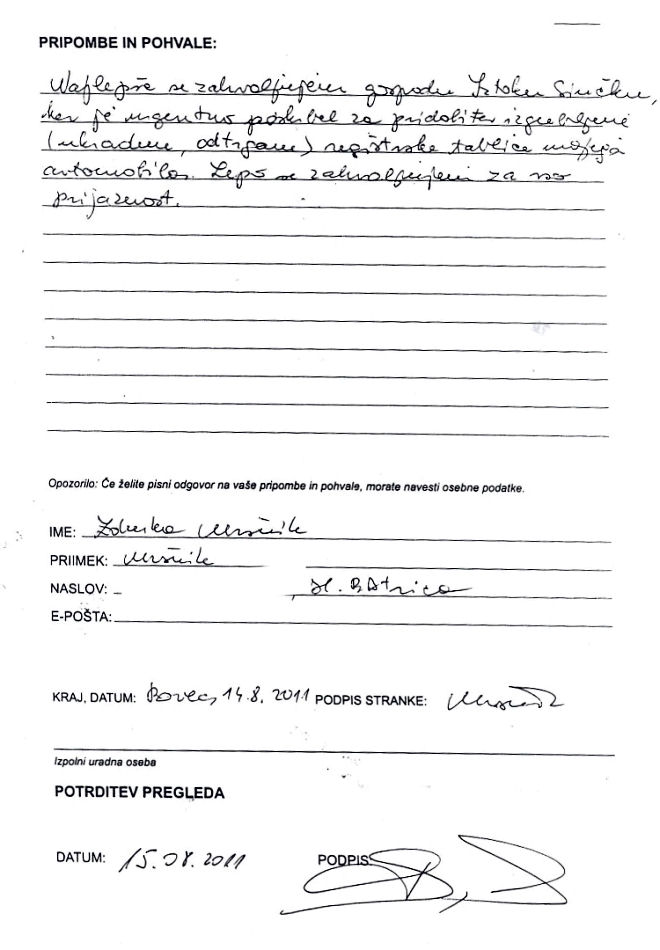 PRIPOMBE IN POHVALE:
Najlepše se zahvaljujem gospodu Iztoku Sinčku,
ker je urgentno poskrbel za pridobitev izgubljene
(ukradene, odtrgane) registrske tablice mojega
avtomobila. Lepo se zahvaljujem za vso
prijaznost.
Opozorilo: Če želite pisni odgovor na vaše pripombe in pohvale, morate navesti osebne podatke.
IME: Zdenka Mršnik
PRIIMEK: Mršnik
NASLOV: , Il. Bistrica
E-POŠTA:
KRAJ, DATUM: Bovec, 14.8.2011 PODPIS STRANKE:
Izpolni uradna oseba
POTRDITEV PREGLEDA
DATUM: 15.08.2011 PODPIS: